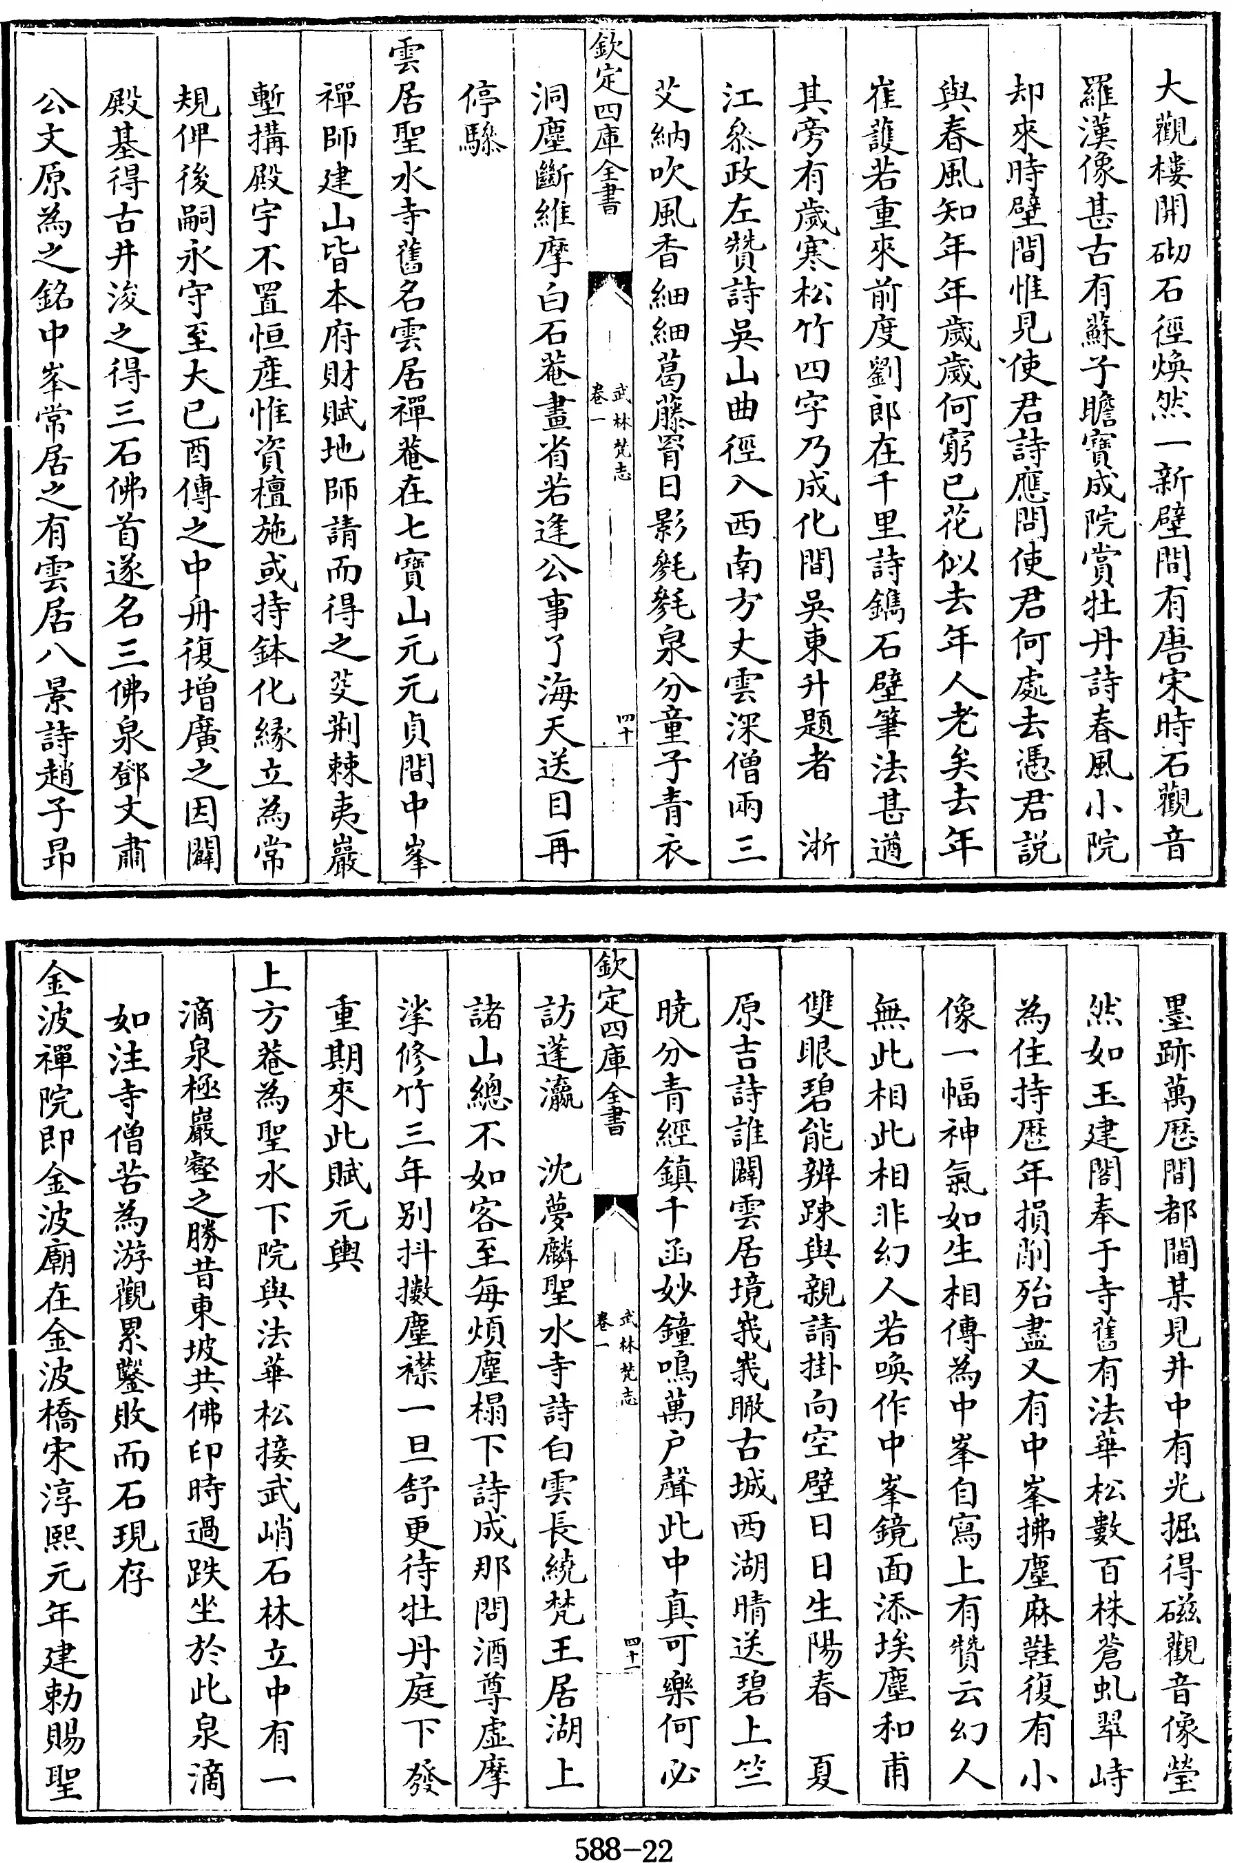 大觀樓開砌石徑煥然一新壁間有唐宋時石觀音
羅漢像甚古有蘇子瞻寶成院賞牡丹詩春風小院
却來時壁間惟見使君詩應問使君何處去憑君説
與春風知年年歲歲何窮已花似去年人老矣去年
崔護若重來前度劉郎在千里詩鐫石壁筆法甚遒
其旁有歲寒松竹四字乃成化間吳東升題者 浙
江叅政左贊詩吳山曲徑入西南方丈雲深僧兩三
艾納吹風香細細葛藤罥日影毿毿泉分童子青衣
欽定四庫全書
武林梵志
卷一
四十
洞塵斷維摩白石菴畫省若逢公事了海天送目再
停驂
雲居聖水寺舊名雲居禪菴在七寶山元元貞間中峯
禪師建山皆本府財賦地師請而得之芟荆棘夷巖
塹搆殿宇不置恒産惟資檀施或持鉢化縁立為常
規俾後嗣永守至大已酉傳之中舟復增廣之因闢
殿基得古井浚之得三石佛首遂名三佛泉鄧文肅
公文原為之銘中峯常居之有雲居八景詩趙子昂
墨跡萬歴間都閫某見井中有光掘得磁觀音像瑩
然如玉建閣奉于寺舊有法華松數百株蒼虬翠峙
為住持歴年損削殆盡又有中峯拂塵麻鞋復有小
像一幅神氣如生相傳為中峯自寫上有贊云幻人
無此相此相非幻人若喚作中峯鏡面添埃塵和甫
雙眼碧能辨踈與親請掛向空壁日日生陽春 夏
原吉詩誰闢雲居境峩峩瞰古城西湖晴送碧上竺
曉分青經鎮千函妙鐘鳴萬户聲此中真可樂何必
欽定四庫全書
武林梵志
卷一
四十一
訪蓬瀛 沈夢麟聖水寺詩白雲長繞梵王居湖上
諸山總不如客至每煩塵榻下詩成那問酒尊虛摩
挲修竹三年别抖擻塵襟一旦舒更待牡丹庭下發
重期來此賦元輿
上方菴為聖水下院與法華松接武峭石林立中有一
滴泉極巖壑之勝昔東坡共佛印時過趺坐於此泉滴
如注寺僧苦為游觀累鑿敗而石現存
金波禪院即金波廟在金波橋宋淳熙元年建勅賜聖
588-22